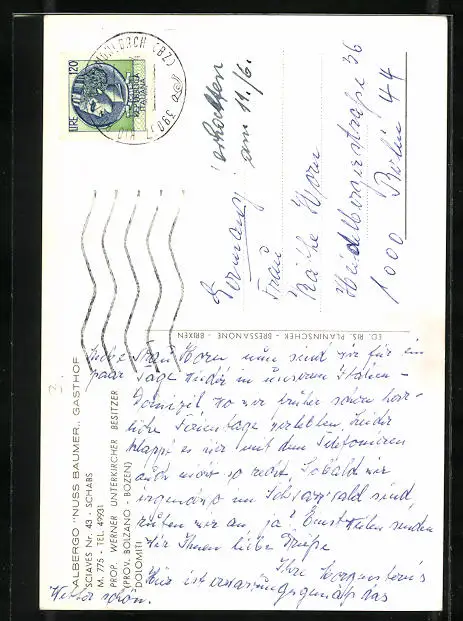 ALBERGO "NUSS BAUMER„ GASTHOF
SCIAVES Nr. 43 - SCHABS
M. 775 - TEL. 49931
PROP. WERNER UNTERKIRCHER BESITZER
(PROV. BOLZANO - BOZEN)
DOLOMITI
ED. RIS. PLANINSCHEK - BRESSANONE - BRIXEN
LIRE 120
REPUBBLICA ITALIANA
(BZ)
erhalten
am 11./6.
Germany
Frau
Käthe Horn
Heidelbergerstraße 36
1000 Berlin 44
Liebe Frau Horn nun sind wir für ein
paar Tage wieder in unserem Italien-
Domizil wo wir früher schon herr-
liche Ferientage verlebten. Leider
klappt es hier mit dem Telefonieren
auch nicht so recht. Sobald wir
irgendwo im Schwarzwald sind,
rufen wir an, ja? Einstweilen senden
wir Ihnen liebe Grüße
Ihre Morgensterns
Hier ist erwartungsgemäß das
Wetter schön.